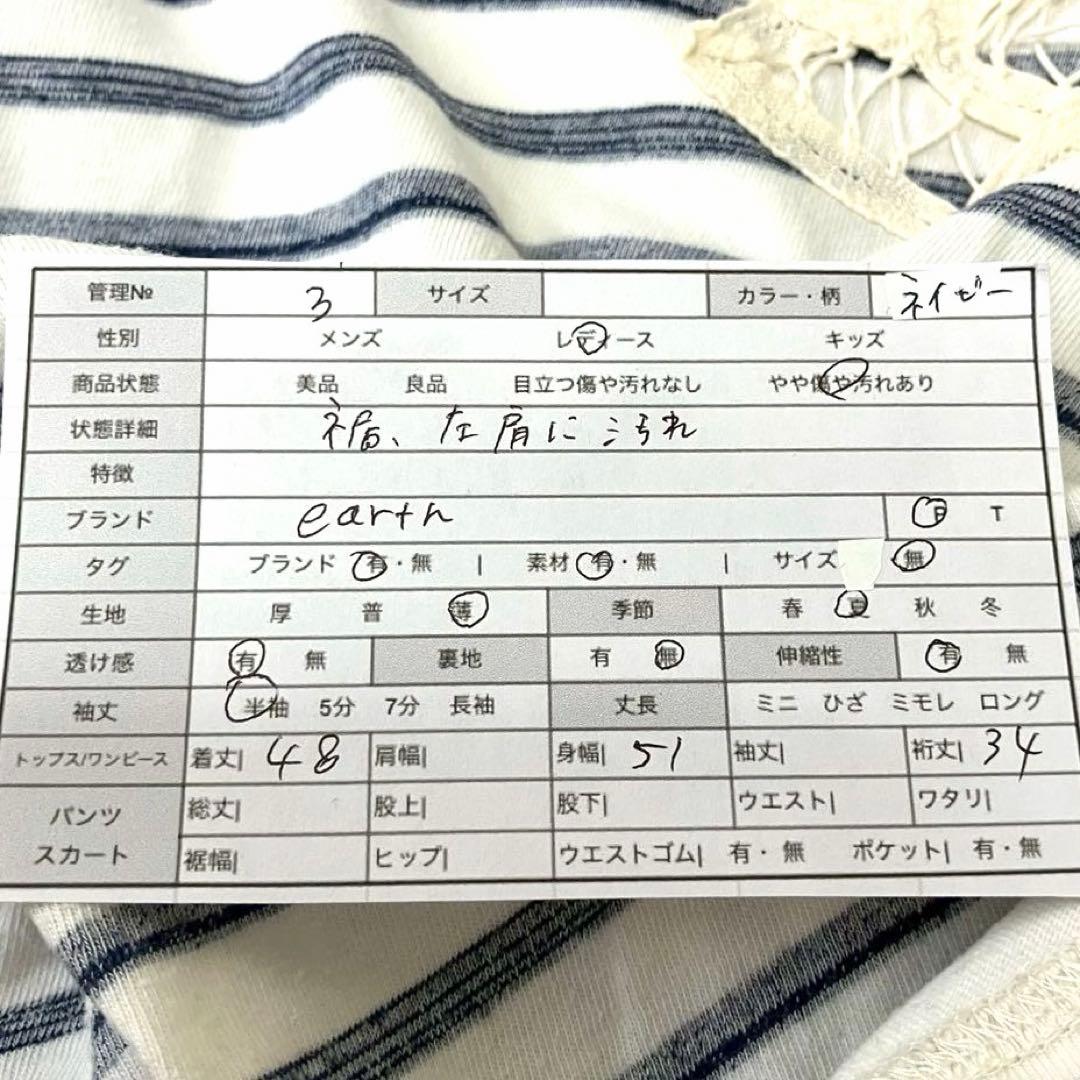 管理№ 3 サイズ カラー・柄 ネイビー
性別 メンズ レディース キッズ
商品状態 美品 良品 目立つ傷や汚れなし やや傷や汚れあり
状態詳細 裾、左肩に汚れ
特徴
ブランド earth 日 T
タグ ブランド 有・無 | 素材 有・無 | サイズ 無
生地 厚 普 薄 季節 春 夏 秋 冬
透け感 有 無 裏地 有 無 伸縮性 有 無
袖丈 半袖 5分 7分 長袖 丈長 ミニ ひざ ミモレ ロング
トップス/ワンピース 着丈| 48 肩幅| 身幅| 51 袖丈| 裄丈| 34
パンツ 総丈| 股上| 股下| ウエスト| ワタリ|
スカート 裾幅| ヒップ| ウエストゴム| 有・無 ポケット| 有・無